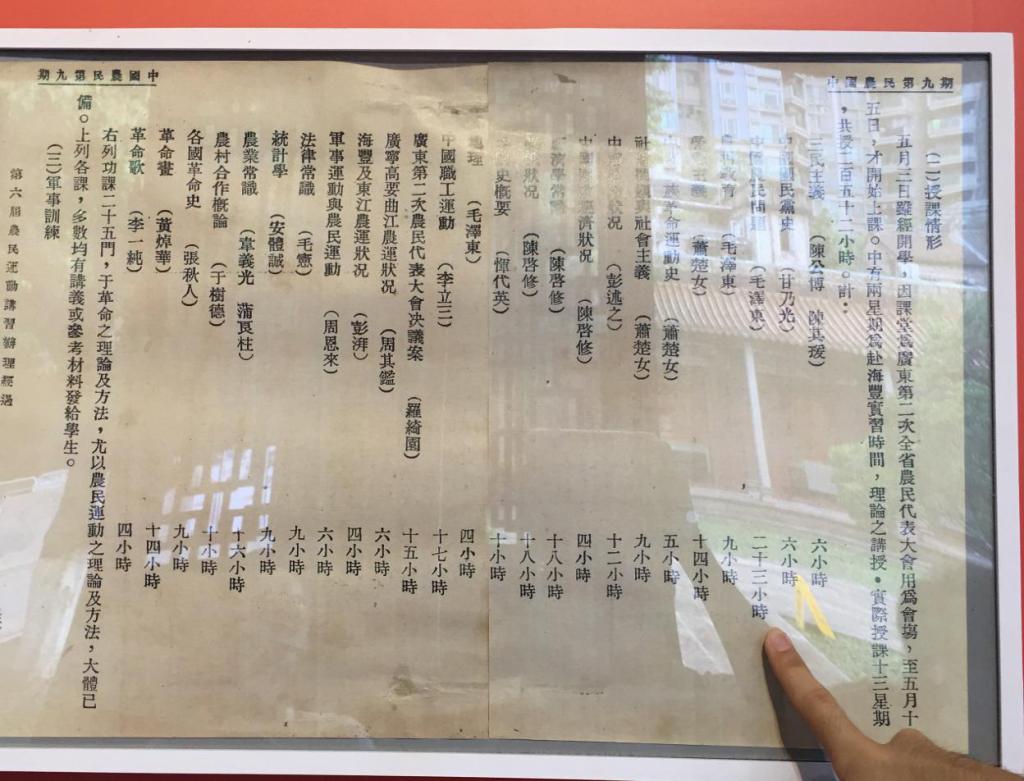 中國農民第九期
(二)授課情形
五月三日雖經開學,因課堂爲廣東第二次全省農民代表大會用爲會塲,至五月十
五日,才開始上課。中有兩星期爲赴海豐實習時間,理論之講授,實際授課十三星期
,共授二百五十二小時。計:
三民主義 (陳公博 陳其瑗) 六小時
中國國民黨史 (甘乃光) 六小時
中國農民問題 (毛澤東) 二十三小時
農村教育 (毛澤東) 九小時
(蕭楚女) 十四小時
民族革命運動史 (蕭楚女) 五小時
社會 社會主義 (蕭楚女) 九小時
中 狀況 (彭述之) 十二小時
中國 經濟狀況 (陳啓修) 四小時
經濟學常識 (陳啓修) 十八小時
狀況 (陳啓修) 十八小時
史概要 (惲代英) 十小時
地理 (毛澤東) 四小時
中國職工運動 (李立三) 十七小時
廣東第二次農民代表大會决議案 (羅綺園) 十五小時
廣寧高要曲江農運狀況 (周其鑑) 六小時
海豐及東江農運狀況 (彭湃) 四小時
軍事運動與農民運動 (周恩來) 六小時
法律常識 (毛憲) 九小時
統計學 (安體誠) 九小時
農業常識 (韋義光 蒲良柱) 十六小時
農村合作概論 (于樹德) 十小時
各國革命史 (張秋人) 九小時
革命畫 (黃焯華) 十四小時
革命歌 (李一純) 四小時
右列功課二十五門,于革命之理論及方法,尤以農民運動之理論及方法,大體已
中國農民第九期
備。上列各課,多數均有講義或參考材料發給學生。
(三)軍事訓練
第六屆農民運動講習所辦理經過